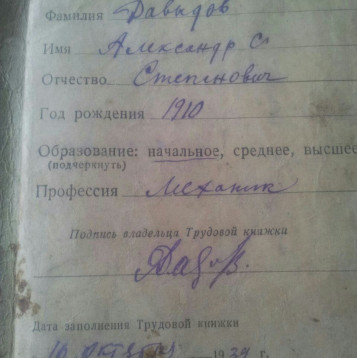 Фамилия Давыдов
Имя Александр С.
Отчество Степанович
Год рождения 1910
Образование: начальное, среднее, высшее
(подчеркнуть)
Профессия Механик
Подпись владельца Трудовой книжки
Дата заполнения Трудовой книжки
16 октября 19